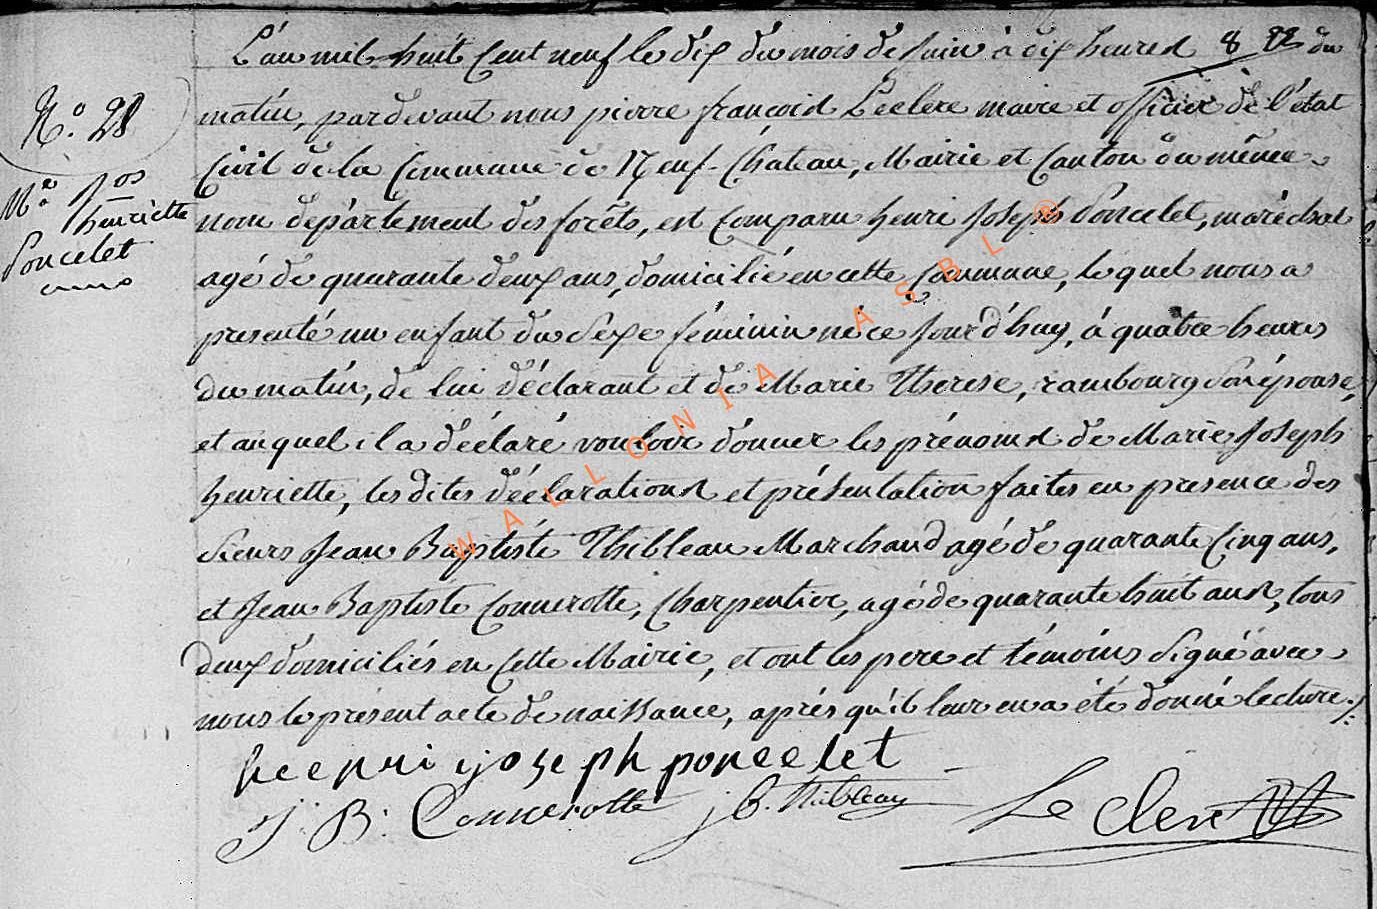 L'an mil huit Cent neuf le dix du mois de Juin à dix heures du
N.° 28
matin, pardevant nous pierre françois Leclere maire et officier de l'état
Civil de la Commune de Neuf-Chateau, Mairie et Canton du même
M.e Jos
henriette
Poncelet
nom departement des forêts, est Comparu henri Joseph Poncelet, maréchal
agé de quarante deux ans, domicilié en cette Commune, lequel nous a
presenté un enfant du Sexe féminin né ce Jourd'huy, à quatre heures
du matin, de lui déclarant et de Marie Therese, rambourg Son épouse,
et auquel il a déclaré vouloir donner les prénoms de Marie Joseph
henriette, les dites déclarations et présentation faites en presence des
Sieurs Jean Baptiste Thibleau Marchand agé de quarante Cinq ans,
et Jean Baptiste Connerotte, Charpentier, agé de quarante huit ans, tous
deux domiciliés en Cette Mairie, et ont les pere et témoins Signé avec
nous le présent acte de naissance, après qu'il leur en a été donné lecture./.
heenri joseph poncelet
J: B: Connerotte j b. thibleau Le Clere
WALLONIA ASBL ®